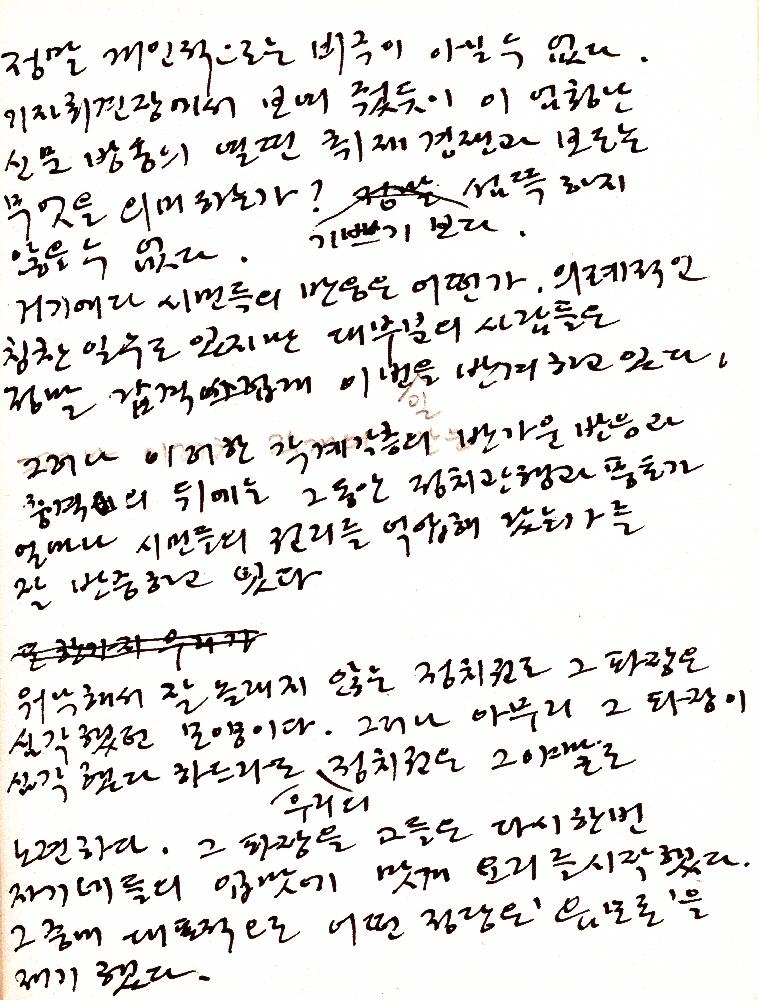 정말 개인적으로는 비극이 아닐 수 없다.
기자회견장에서 보여 줬듯이 이 엄청난
신문 방송의 열띤 취재 경쟁과 보도는
무엇을 의미하는가? 정말 섬뜩하지
않을 수 없다. 기쁘기 보다.
거기에다 시민들의 반응은 어떤가. 의례적인
칭찬 일수도 있지만 대부분의 사람들은
정말 감격스럽게 이번 일을 반겨하고 있다.
그러나 이러한 각계각층의 반가운 반응과
충격의 뒤에는 그동안 정치관행과 풍토가
얼마나 시민들의 권리를 억압해 왔는가를
잘 반증하고 있다
또 한가지 우리가
워낙해서 잘 놀래지 않는 정치권도 그 파장은
심각했던 모양이다. 그러나 아무리 그 파장이
심각했다 하드라도 정치권은 그야말로
우리의
노련하다. 그 파장을 그들은 다시한번
자기네들의 입맛에 맞게 요리를 시작했다.
그중에 대표적으로 어떤 정당은 '음모론'을
제기했다.